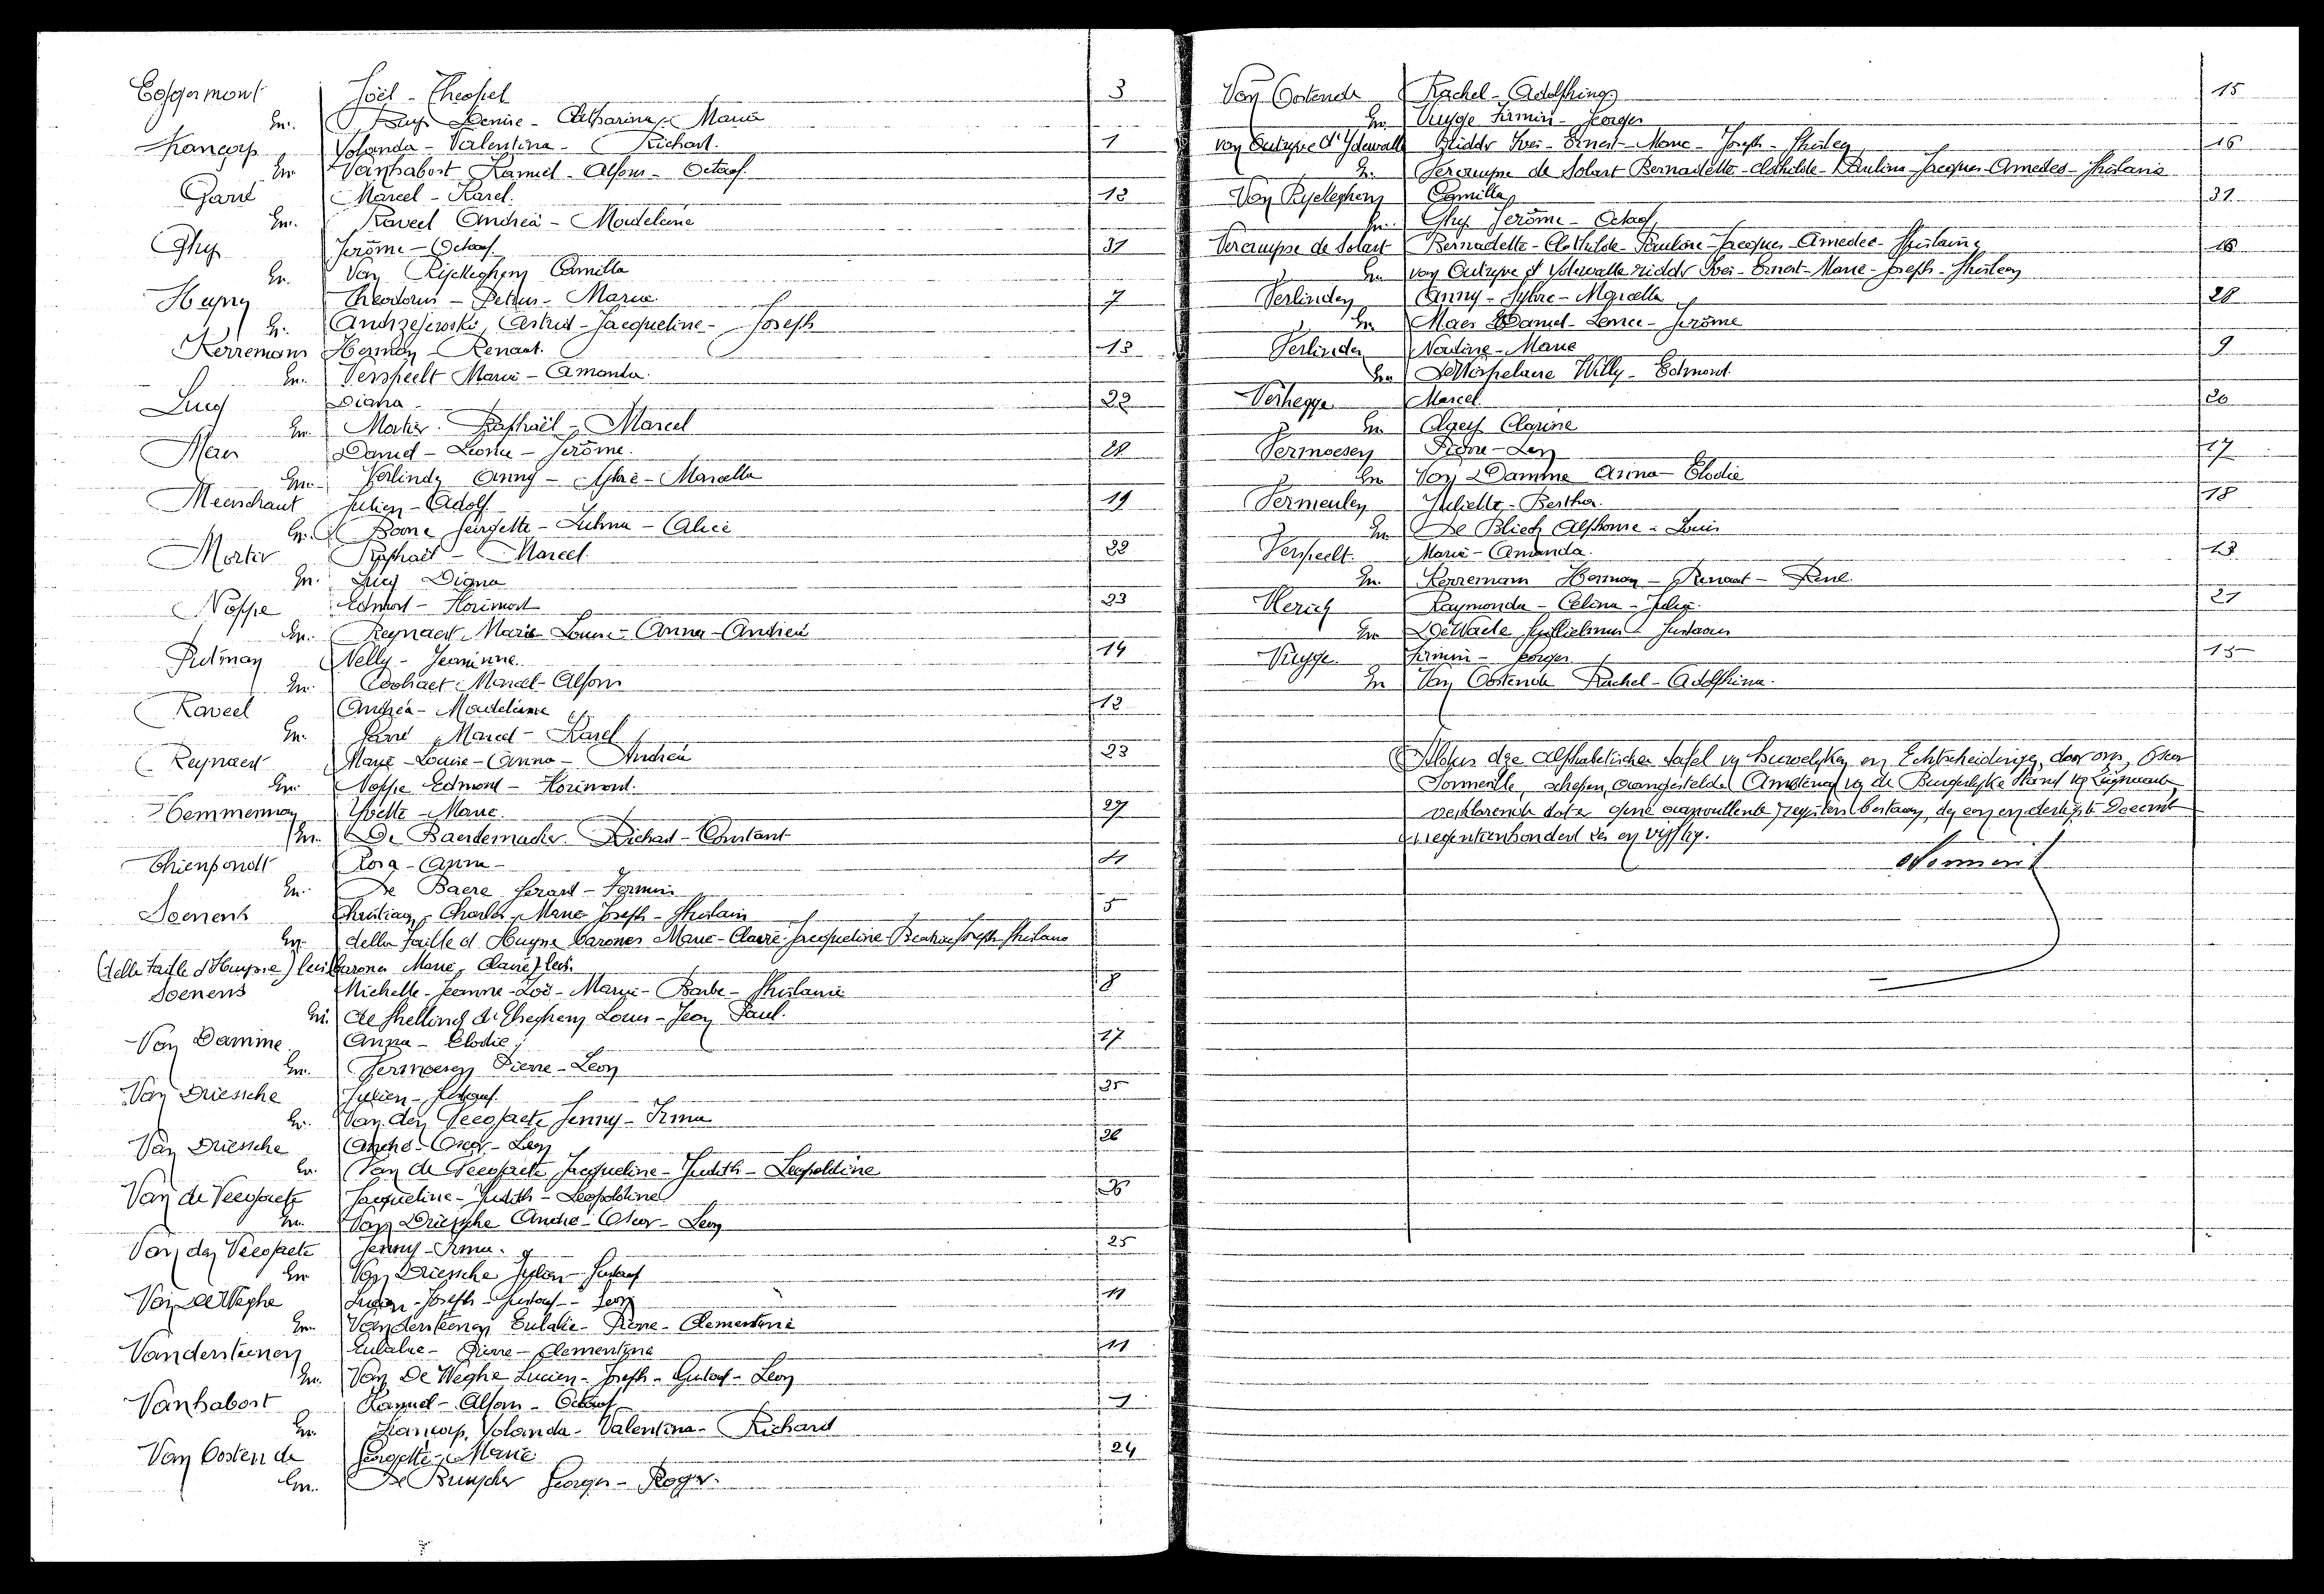 Eggermont Joël - Theofiel 3
En. Buys Denise - Catharina - Maria
Francop Yolanda - Valentina - Richard. 1
En Vanhabost Kamiel - Alfons - Octaaf.
Garré Marcel - Karel. 12
En. Raveel Andréa - Madeleine
Ghys Jerôme - Octaaf 31
En. Van Ryckeghem Camilla
Huyng Theodorus - Petrus - Maria. 7
En. Andrzejewski Astrid - Jacqueline - Joseph
Kerremans Herman - Renaat. 13
En. Verspeelt Maria - Amanda.
Lucq Diana 22
En. Mortier Raphaël - Marcel
Maes Daniel - Leonce - Jerôme. 28
En. Verlinden Anny - Sylvie - Marcella
Meerschaut Julien - Adolf 19
En. Boone Georgette - Zulma - Alice
Mortier Raphaël - Marcel. 22
En. Lucq Diana
Noppe Edmond - Florimond 23
En. Reynaert Marie - Louise - Anna - Andréa
Putman Nelly - Jeannine. 14
En. Cochaet Marcel - Alfons
Raveel Andréa - Madeleine 12
En. Garré Marcel - Karel
Reynaert Marie - Louise - Anna - Andréa 23
En. Noppe Edmond - Florimond.
Temmerman Yvette - Marie. 27
En. De Baerdemacker Richard - Constant
Thienpondt Rosa - Anna - 4
En. De Baere Gerard - Firmin
Soenens Christian - Charles - Marie - Joseph - Ghislain 5
En. della Faille d'Huysse barones Marie - Claire - Jacqueline - Beatrice - Joseph - Ghislaine
(della Faille d'Huysse) lees barones Marie, Claire) lees.
Soenens Michelle - Jeanne - Zoë - Marie - Barbe - Ghislaine 8
En. de Ghellinck d'Elseghem Louis - Jean Paul.
Van Damme Anna - Elodie 17
En. Vermoesen Pierre - Leon
Van Driessche Julien - Gustaaf. 25
En. Van den Veegaete Jenny - Irma
Van Driessche André - Oscar - Leon 26
En. Van de Veegaete Jacqueline - Judith - Leopoldine
Van de Veegaete Jacqueline - Judith - Leopoldine 26
En. Van Driessche André - Oscar - Leon
Van den Veegaete Jenny - Irma. 25
En Van Driessche Julien - Gustaaf
Van De Weghe Lucien - Joseph - Gustaaf - Leon 11
En. Vandersteenen Eulalie - Pierre - Clementine
Vandersteenen Eulalie - Pierre - Clementine 11
En. Van De Weghe Lucien - Joseph - Gustaaf - Leon
Vanhabost Kamiel - Alfons - Octaaf 1
En. Francop Yolanda - Valentina - Richard
Van Oostende Georgette - Marie. 24
En. De Buyscher Georges - Roger.
Van Oostende Rachel - Adolfhina 15
En. Vuyge Firmin - Georges
van Outryve d'Ydewalle Ridder Yves - Ernest - Marie - Joseph - Ghislain 16
En. Vercruysse de Solart Bernadette - Clothilde - Pauline - Jacques - Amedée - Ghislaine
Van Ryckeghem Camilla 31
En. Ghys Jerôme - Octaaf
Vercruysse de Solart Bernadette - Clothilde - Pauline - Jacques - Amedée - Ghislaine 16
En van Outryve d'Ydewalle ridder Yves - Ernest - Marie - Joseph - Ghislain
Verlinden Anny - Sylvie - Marcella 28
En Maes Daniel - Leonce - Jerôme
Verlinden Nadine - Marie 9
En De Worpelaere Willy - Edmond.
Verhegge Marcel. 20
En. Claeys Clarine
Vermoesen Pierre - Leon 17
En Van Damme Anna - Elodie
Vermeulen Juliette - Bertha. 18
En De Blieck Alphonse - Louis
Verspeelt. Maria - Amanda. 13
En. Kerremans Herman - Renaat - René.
Weric Raymonda - Celina - Julia. 21
En De Waele Guillielmus - Gustavus
Vuyge. Firmin - Georges 15
En Van Oostende Rachel - Adolfhina.
Sloten deze alphabetischen tafel van Huwelijken en Echtscheidingen, door ons, Oscar
Dormeille, schepen, aangestelde Ambtenaar van de Burgerlijke Stand
verklarende dat er gene aanvullende registers bestaan, den een en dertigste December
negentienhonderd zes en vijftig.